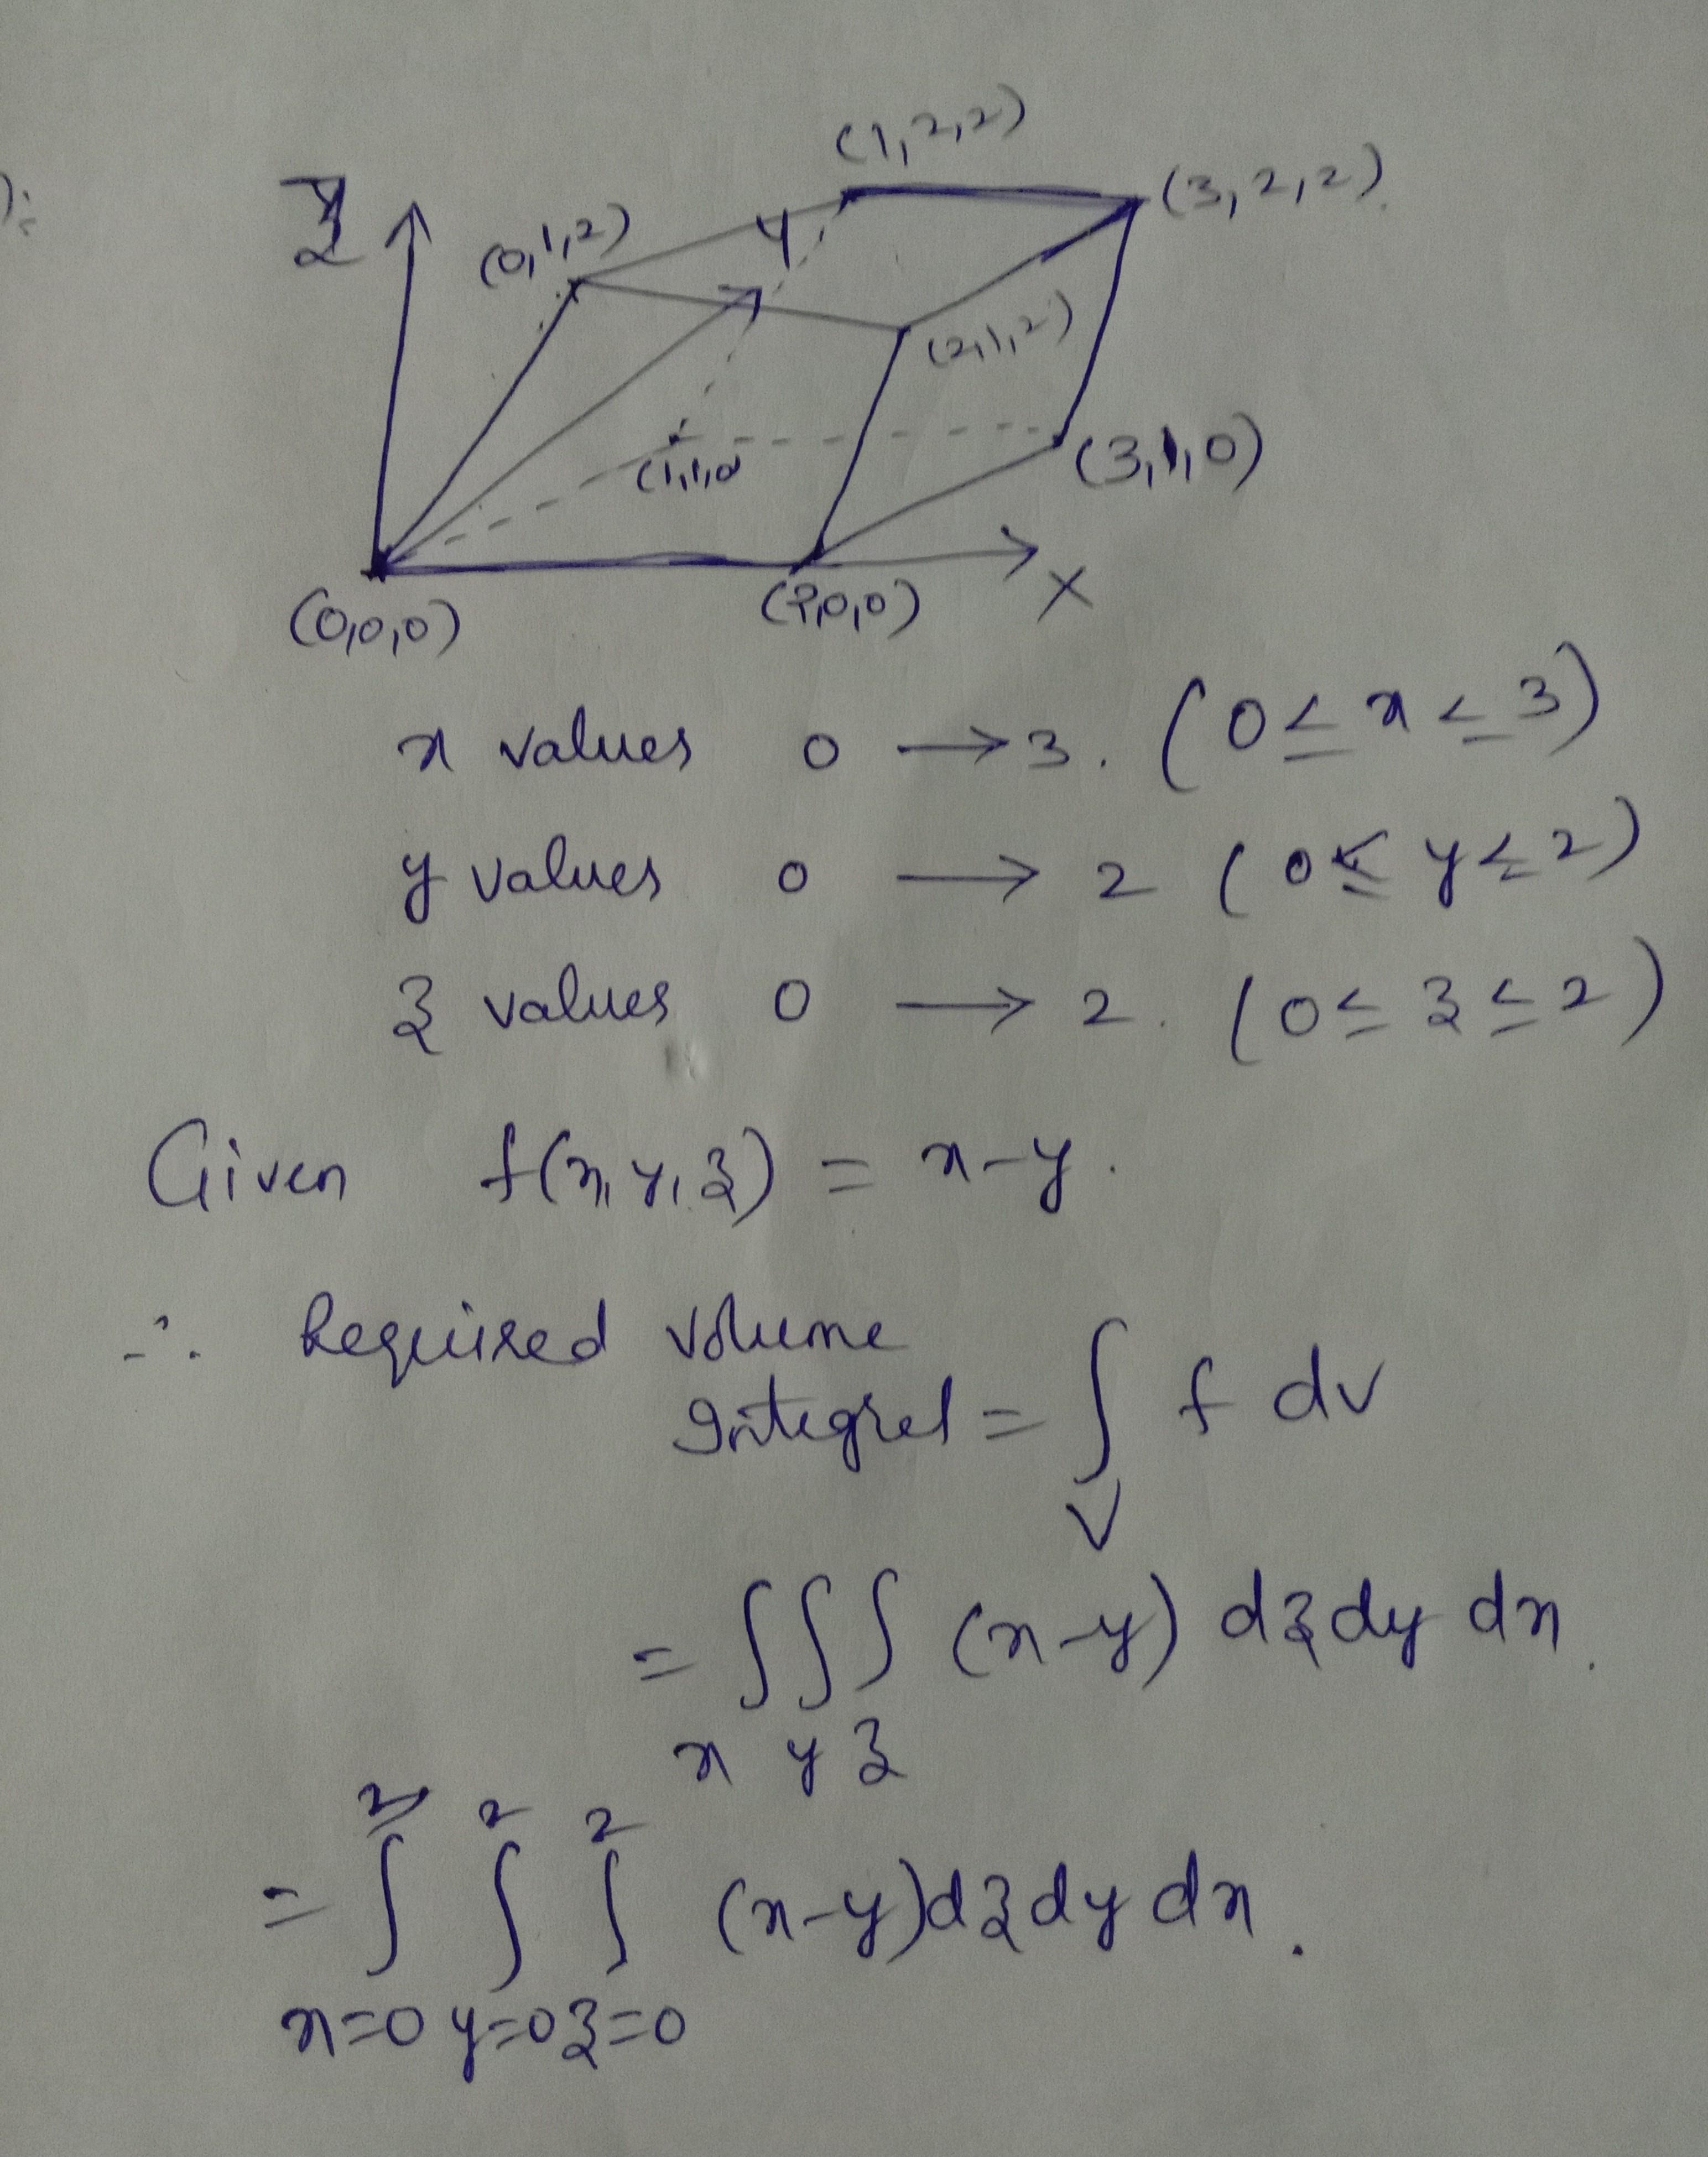 (1,2,2)
(3,2,2).
Z
(0,1,2)
y
(2,1,2)
(1,1,0
(3,1,0)
(0,0,0)
(2,0,0)
X
x values 0 → 3. (0 ≤ x ≤ 3)
y values 0 → 2 (0 ≤ y ≤ 2)
z values 0 → 2. (0 ≤ z ≤ 2)
Given f(x, y, z) = x-y.
∴ Required volume
Integral = ∫ f dv
V
= ∫∫∫ (x-y) dz dy dx.
x y z
2 2
= ∫ ∫ ∫ (x-y) dz dy dx.
x=0 y=0 z=0